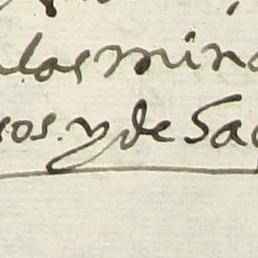 las mina
sos. y de Sa